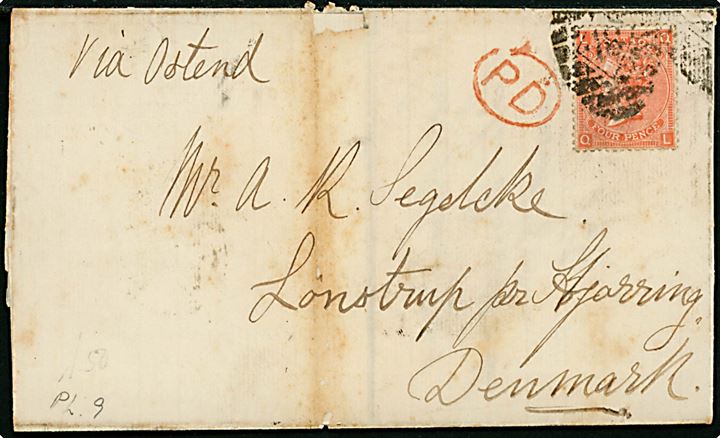 Via Ostend
PD
FOUR PENCE
O L
Mr. A. K. Segelcke
Lönstrup pr Hjørring,
Denmark.
150
PL. 9